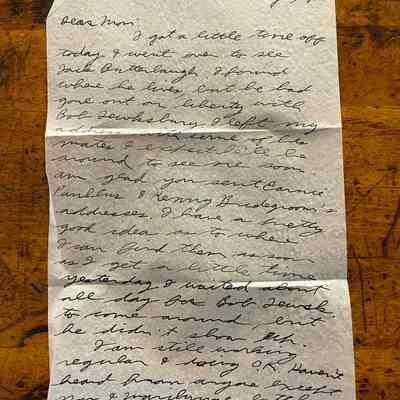 Dear Mom:
I got a little time off
today & went over to see
Jack Butterbaugh. I found
where he lives but he had
gone out on liberty with
Bob Tewksbury. I left my
address with some of his
mates & expect to be
around to see me soon
am glad you sent Connie
& Kenny Bridegroom's
addresses. I have a pretty
good idea as to where
I can find them as soon
as I get a little time
yesterday I waited about
all day for Bob Tewsk
to come around, but
he didn't show up.
I am still working
regular & doing O.K. Haven't
heard from anyone except
you &